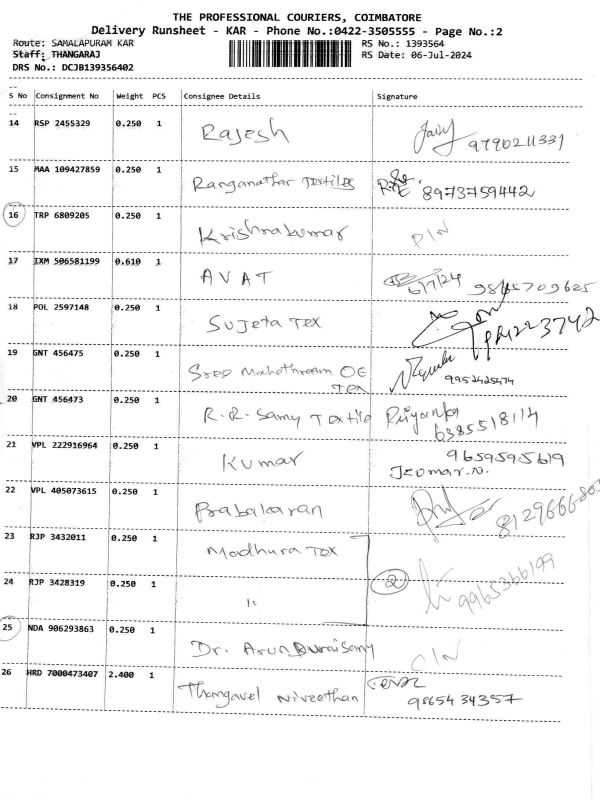 THE PROFESSIONAL COURIERS, COIMBATORE
Delivery Runsheet - KAR - Phone No.:0422-3505555 - Page No.:2
Route: SAMALAPURAM KAR RS No.: 1393564
Staff: THANGARAJ RS Date: 06-Jul-2024
DRS No.: DCJB139356402
S No Consignment No Weight PCS Consignee Details Signature
14 RSP 2455329 0.250 1 Rajesh 9790211331
15 MAA 109427859 0.250 1 Ranganathar Textiles 8973759442
16 TRP 6809205 0.250 1 Krishnakumar PIN
17 IXM 506581199 0.610 1 AVAT 6/7/24 9865709625
18 POL 2597148 0.250 1 Sujeta Tex
19 GNT 456475 0.250 1 OE
Tex 9952425474
20 GNT 456473 0.250 1 R.R. Samy Textile Priyanka
6385518114
21 VPL 222916964 0.250 1 Kumar 9659595619
22 VPL 405073615 0.250 1 Prabakaran
23 RJP 3432011 0.250 1 Madhura Tex
24 RJP 3428319 0.250 1 " 2 9965366199
25 NDA 906293863 0.250 1 Dr. Arun Duraisamy
26 HRD 7000473407 2.400 1 Thangavel Niveethan 9865434357